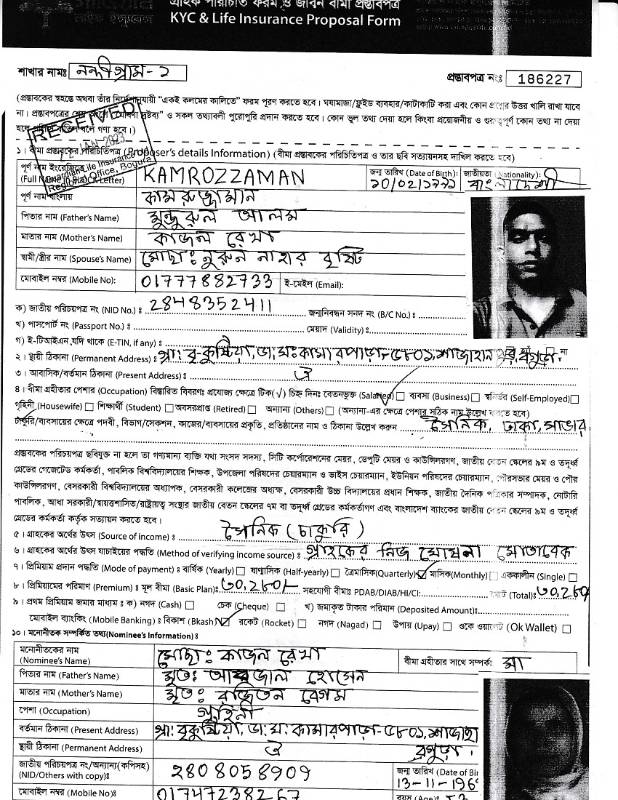 গ্রাহক পরিচিতি ফরম ও জীবন বীমা প্রস্তাবপত্র
KYC & Life Insurance Proposal Form
শাখার নামঃ নন্দীগ্রাম-১
প্রস্তাবপত্র নংঃ 186227
(প্রস্তাবকের স্বহস্তে অথবা তাঁর নির্দেশনুযায়ী "একই কলমের কালিতে" ফরম পূরণ করতে হবে। ঘষামাজা/ফ্লুইড ব্যবহার/কাটাকাটি করা এবং কোন প্রশ্নের উত্তর খালি রাখা যাবে
না। প্রস্তাবপত্রের দ্রষ্টব্য" ও সকল তথ্যাবলী পুরোপুরি প্রদান করতে হবে। কোন ভুল তথ্য দেয়া হলে কিংবা প্রয়োজনীয় ও গুরুত্বপূর্ণ কোন তথ্য না দেয়া
হলে বলে গণ্য হবে।)
RECEIVED
Life Insurance
Regional Office, Bogura
১। বীমা প্রস্তাবকের পরিচিতিপত্র (Proposer's details Information) (বীমা প্রস্তাবকের পরিচিতিপত্র ও তার ছবি সত্যায়নসহ দাখিল করতে হবে)
পূর্ণ নাম ইংরেজিতে (Full Name Letter) KAMROZZAMAN
জন্ম তারিখ (Date of Birth): 10/02/1991 জাতীয়তা (Nationality): বাংলাদেশী
পূর্ণ নাম বাংলায় কামরুজ্জামান
পিতার নাম (Father's Name) মুন্জুরুল আলম
মাতার নাম (Mother's Name) কাজল রেখা
স্বামী/স্ত্রীর নাম (Spouse's Name) মোছাঃ নুরুন নাহার বৃষ্টি
মোবাইল নম্বর (Mobile No): 01777882733 ই-মেইল (Email):
ক) জাতীয় পরিচয়পত্র নং (NID No.) ঃ 2848352411 জন্মনিবন্ধন সনদ নং (B/C No.) ঃ
খ) পাসপোর্ট নং (Passport No.) ঃ মেয়াদ (Validity) ঃ
গ) ই-টিআইএন,যদি থাকে (E-TIN, if any) ঃ
২। স্থায়ী ঠিকানা (Permanent Address) ঃ গ্রা: বৃকুষ্টিয়া, ডা:ঘ: কামারপাড়া-৫৮০১, শাজাহানপুর, বগুড়া
৩। আবাসিক/বর্তমান ঠিকানা (Present Address) ঃ ঐ
৪। বীমা গ্রহীতার পেশার (Occupation) বিস্তারিত বিবরণঃ প্রযোজ্য ক্ষেত্রে টিক(√) চিহ্ন দিনঃ বেতনভুক্ত (Salaried) ব্যবসা (Business) স্বনির্ভর (Self-Employed)
গৃহিনী (Housewife) শিক্ষার্থী (Student) অবসরপ্রাপ্ত (Retired) অন্যান্য (Others) (অন্যান্য-এর ক্ষেত্রে পেশার সঠিক নাম উল্লেখ করতে হবে)
চাকুরি/ব্যবসায়ের ক্ষেত্রে পদবী, বিভাগ/সেকশন, কাজের/ব্যবসায়ের প্রকৃতি, প্রতিষ্ঠানের নাম ও ঠিকানা উল্লেখ করুন সৈনিক, ঢাকা, সাভার
প্রস্তাবকের পরিচয়পত্র ছবিযুক্ত না হলে তা গণ্যমান্য ব্যক্তি যথা সংসদ সদস্য, সিটি কর্পোরেশনের মেয়র, ডেপুটি মেয়র ও কাউন্সিলরগণ, জাতীয় বেতন স্কেলের ৯ম ও তদূর্ধ্ব
গ্রেডের গেজেটেড কর্মকর্তা, পাবলিক বিশ্ববিদ্যালয়ের শিক্ষক, উপজেলা পরিষদের চেয়ারম্যান ও ভাইস চেয়ারম্যান, ইউনিয়ন পরিষদের চেয়ারম্যান, পৌরসভার মেয়র ও পৌর
কাউন্সিলরগণ, বেসরকারী বিশ্ববিদ্যালয়ের অধ্যাপক, বেসরকারী কলেজের অধ্যক্ষ, বেসরকারী উচ্চ বিদ্যালয়ের প্রধান শিক্ষক, জাতীয় দৈনিক পত্রিকার সম্পাদক, নোটারি
পাবলিক, আধা সরকারী/স্বায়ত্তশাসিত/রাষ্ট্রায়ত্ত্ব সংস্থার জাতীয় বেতন স্কেলের ৭ম বা তদূর্ধ্ব গ্রেডের কর্মকর্তাগণ এবং বাংলাদেশ ব্যাংকের জাতীয় বেতন স্কেলের ৯ম ও তদূর্ধ্ব
গ্রেডের কর্মকর্তা কর্তৃক সত্যায়ন করতে হবে।
৫। গ্রাহকের অর্থের উৎস (Source of income) ঃ সৈনিক (চাকুরি)
৬। গ্রাহকের অর্থের উৎস যাচাইয়ের পদ্ধতি (Method of verifying income source) ঃ গ্রাহকের নিজ ঘোষনা মোতাবেক
৭। প্রিমিয়াম প্রদান পদ্ধতি (Mode of payment) ঃ বার্ষিক (Yearly) যাণ্মাসিক (Half-yearly) ত্রৈমাসিক(Quarterly) মাসিক(Monthly) এককালীন (Single)
৮। প্রিমিয়ামের পরিমাণ (Premium) ঃ মূল বীমা (Basic Plan): ৩০,২৮০/- সহযোগী বীমাঃ PDAB/DIAB/HI/CI: মোট (Total): ৩০,২৮০
৯। প্রথম প্রিমিয়াম জমার মাধ্যম ঃ ক) নগদ (Cash) চেক (Cheque) খ) জমাকৃত টাকার পরিমান (Deposited Amount):
মোবাইল ব্যাংকিং (Mobile Banking) ঃ বিকাশ (Bkash) রকেট (Rocket) নগদ (Nagad) উপায় (Upay) ওকে ওয়ালেট (Ok Wallet)
১০। মনোনীতক সম্পর্কিত তথ্য(Nominee's Information) ঃ
মনোনীতকের নাম (Nominee's Name) মোছাঃ কাজল রেখা বীমা গ্রহীতার সাথে সম্পর্ক: মা
পিতার নাম (Father's Name) মৃত: আফজাল হোসেন
মাতার নাম (Mother's Name) মৃত: রাজিতন বেগম
পেশা (Occupation) গৃহিনী
বর্তমান ঠিকানা (Present Address) গ্রা: বৃকুষ্টিয়া, ডা:ঘ: কামারপাড়া-৫৮০১, শাজাহা
স্থায়ী ঠিকানা (Permanent Address) ঐ বগুড়া।
জাতীয় পরিচয়পত্র নং/অন্যান্য(কপিসহ) (NID/Others with copy)ঃ 2808058909 জন্ম তারিখ (Date of Bir 13-11-196
মোবাইল নম্বর (Mobile No)ঃ 01747238267 বয়স (Age)ঃ 53